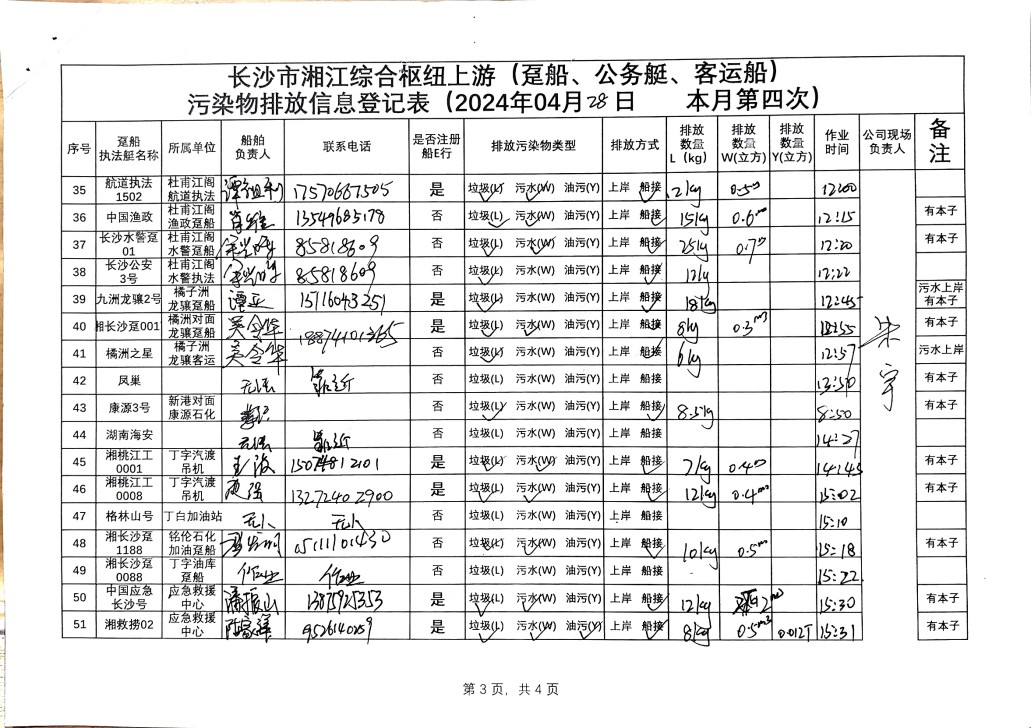 长沙市湘江综合枢纽上游（趸船、公务艇、客运船）
污染物排放信息登记表（2024年04月28日 本月第四次）
序号 趸船执法艇名称 所属单位 船舶负责人 联系电话 是否注册船E行 排放污染物类型 排放方式 排放数量L（kg） 排放数量W(立方) 排放数量Y(立方) 作业时间 公司现场负责人 备注
35 航道执法1502 杜甫江阁航道执法 17570667505 是 垃圾(L) 污水(W) 油污(Y) 上岸 船接 2kg 0.5 12:00
36 中国渔政 杜甫江阁渔政趸船 13549685178 否 垃圾(L) 污水(W) 油污(Y) 上岸 船接 15kg 0.6 12:15 有本子
37 长沙水警趸01 杜甫江阁水警趸船 85818609 否 垃圾(L) 污水(W) 油污(Y) 上岸 船接 25kg 0.7 12:20 有本子
38 长沙公安3号 杜甫江阁水警执法 85818609 否 垃圾(L) 污水(W) 油污(Y) 上岸 船接 12kg 12:22
39 九洲龙骧2号 橘子洲龙骧趸船 谭立 15116043251 是 垃圾(L) 污水(W) 油污(Y) 上岸 船接 18kg 12:45 污水上岸有本子
40 湘长沙趸001 橘洲对面龙骧趸船 吴令华 是 垃圾(L) 污水(W) 油污(Y) 上岸 船接 8kg 0.3m3 12:55 有本子
41 橘洲之星 橘子洲龙骧客运 吴令华 18874101365 否 垃圾(L) 污水(W) 油污(Y) 上岸 船接 6kg 12:57 污水上岸
42 凤巢 无法 靠近 否 垃圾(L) 污水(W) 油污(Y) 上岸 船接 13:50 有本子
43 康源3号 新港对面康源石化 否 垃圾(L) 污水(W) 油污(Y) 上岸 船接 8.5kg 8:50 有本子
44 湖南海安 无法 靠近 否 垃圾(L) 污水(W) 油污(Y) 上岸 船接 14:27
45 湘桃江工0001 丁字汽渡吊机 王波 15074812101 是 垃圾(L) 污水(W) 油污(Y) 上岸 船接 7kg 0.4 14:45 有本子
46 湘桃江工0008 丁字汽渡吊机 13272402900 是 垃圾(L) 污水(W) 油污(Y) 上岸 船接 12kg 0.4m3 15:02 有本子
47 格林山号 丁白加油站 无人 无人 否 垃圾(L) 污水(W) 油污(Y) 上岸 船接 15:10
48 湘长沙趸1188 铭伦石化加油趸船 否 垃圾(L) 污水(W) 油污(Y) 上岸 船接 10kg 0.5m3 15:18 有本子
49 湘长沙趸0088 丁字油库趸船 作业 作业 否 垃圾(L) 污水(W) 油污(Y) 上岸 船接 15:22
50 中国应急长沙号 应急救援中心 潘振山 13875925353 是 垃圾(L) 污水(W) 油污(Y) 上岸 船接 12kg 2m3 15:30 有本子
51 湘救捞02 应急救援中心 是 垃圾(L) 污水(W) 油污(Y) 上岸 船接 8kg 0.5m3 0.012T 15:31 有本子
宋宇
第 3 页，共 4 页